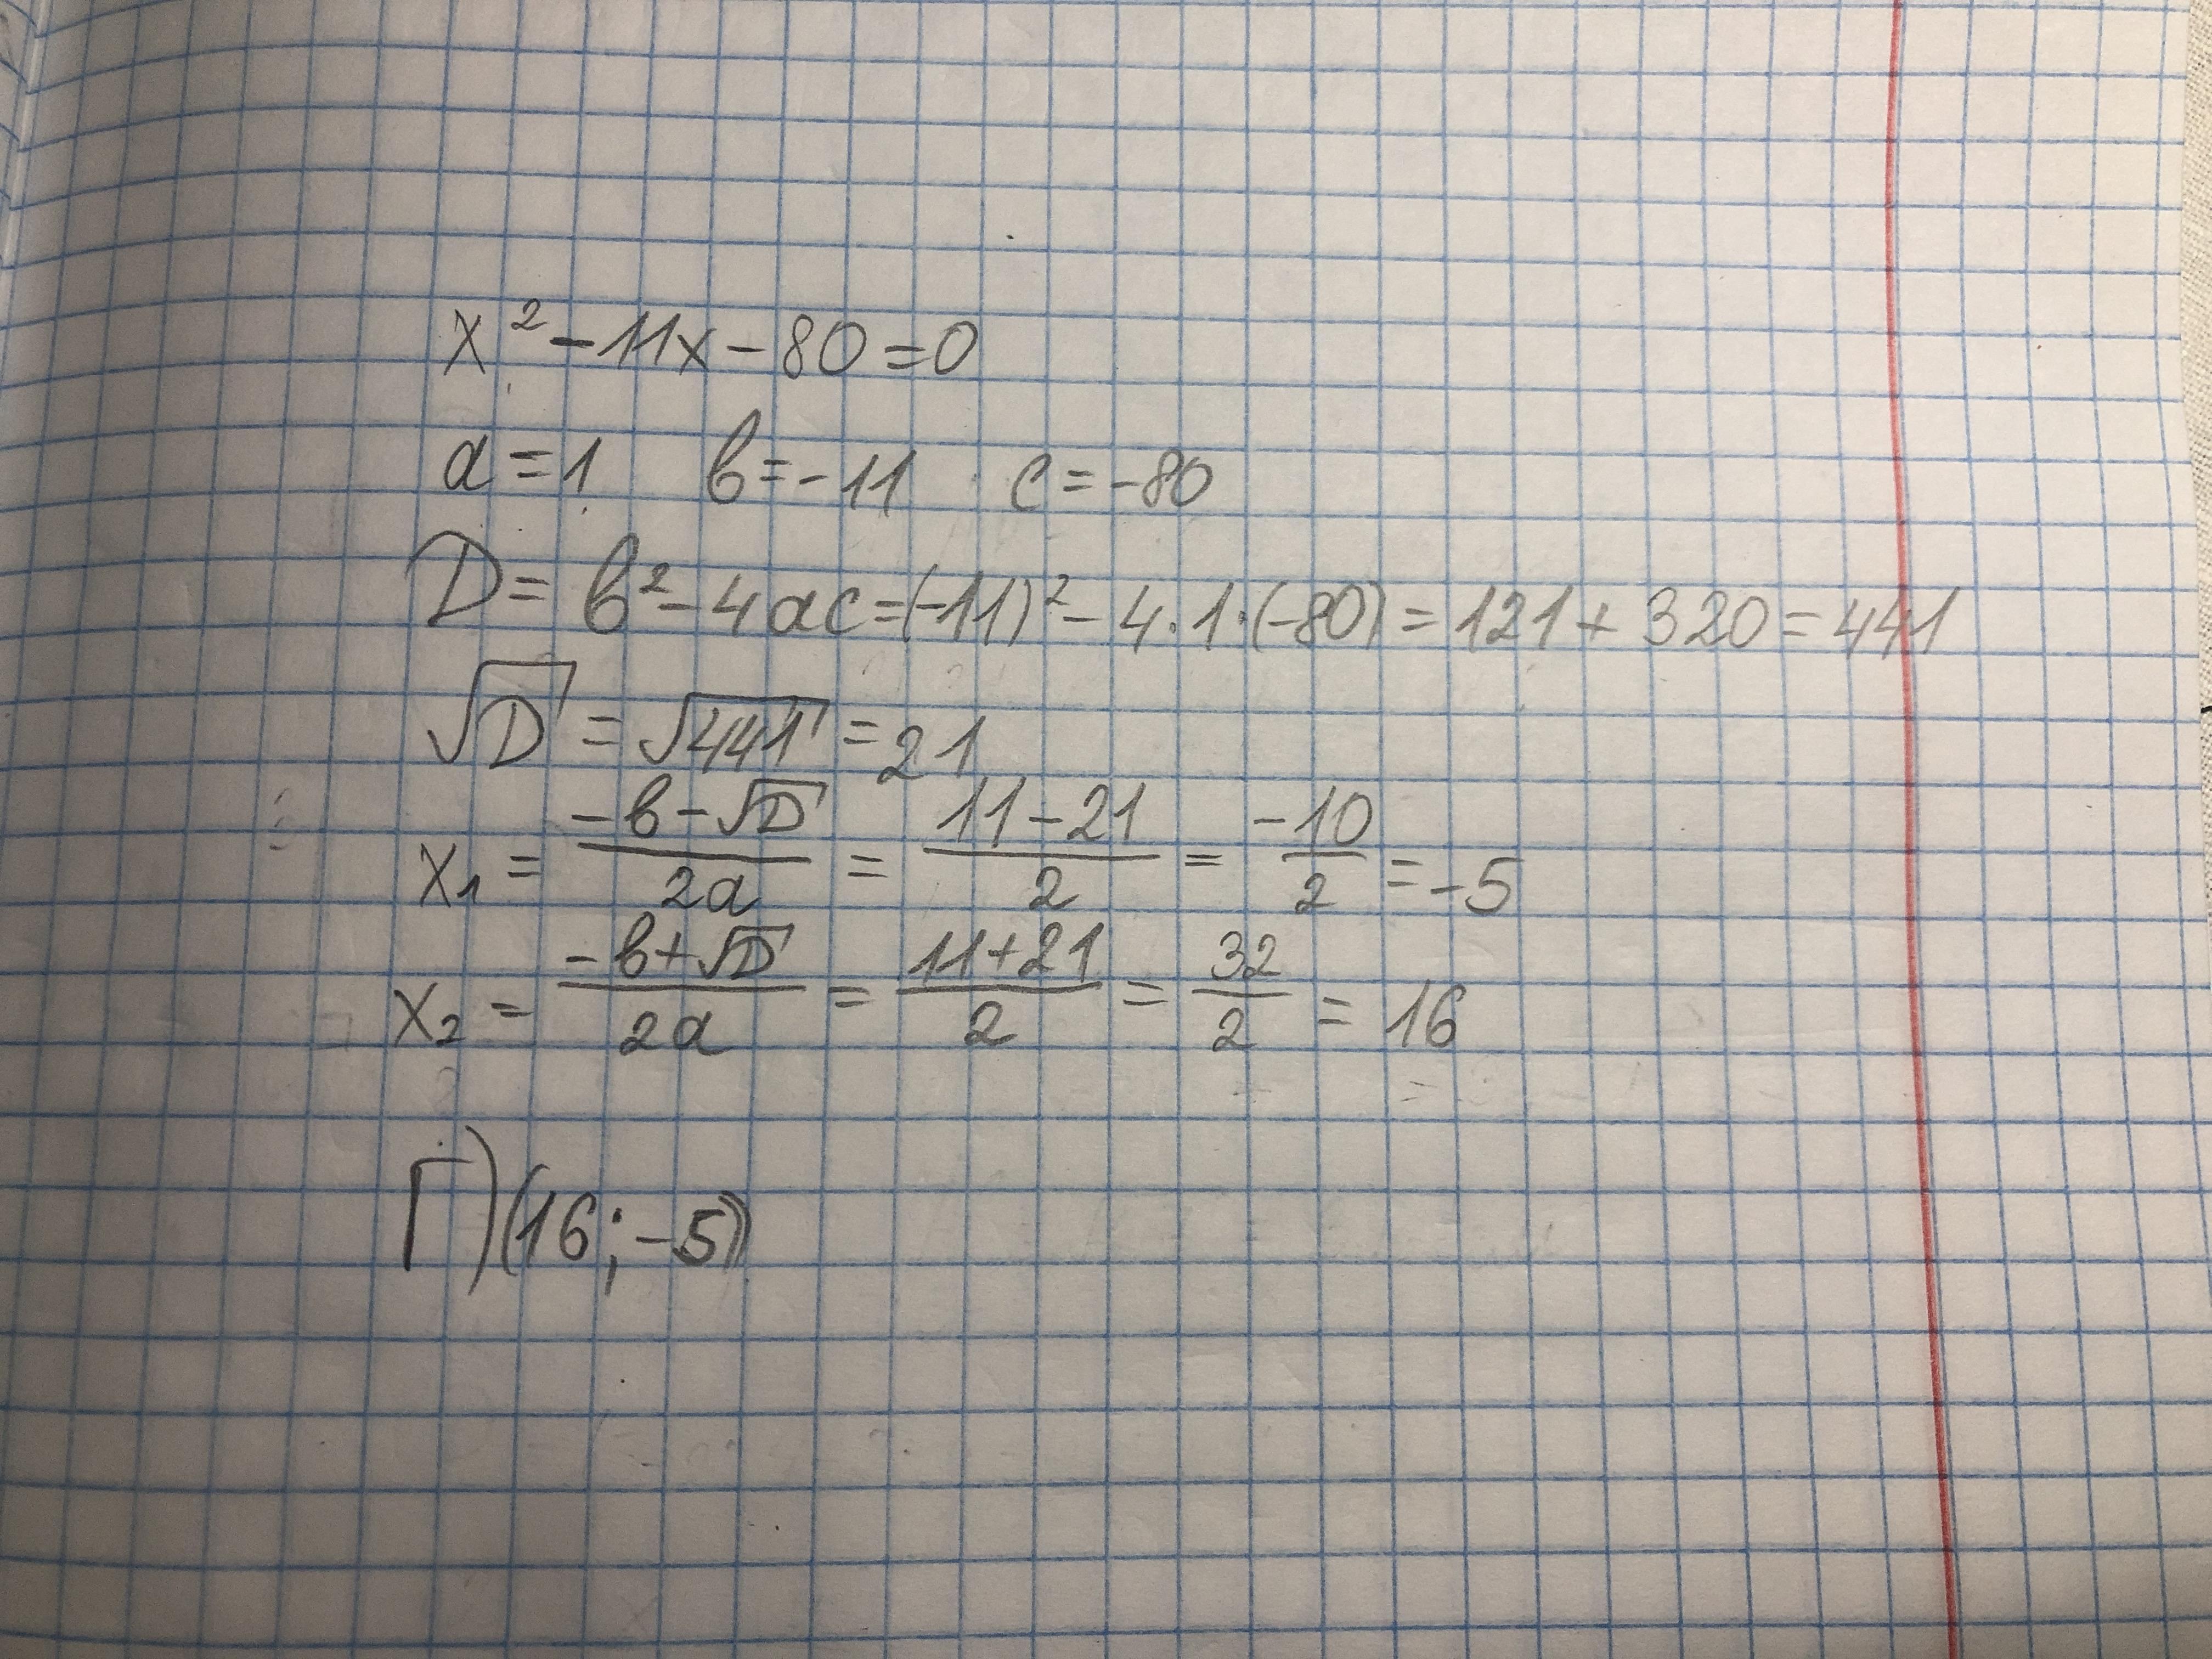 x² - 11x - 80 = 0
a = 1 в = -11 c = -80
D = в² - 4ac = (-11)² - 4·1·(-80) = 121 + 320 = 441
√D = √441 = 21
x₁ = (-в - √D)/(2a) = (11 - 21)/2 = -10/2 = -5
x₂ = (-в + √D)/(2a) = (11 + 21)/2 = 32/2 = 16
Г) (16; -5)